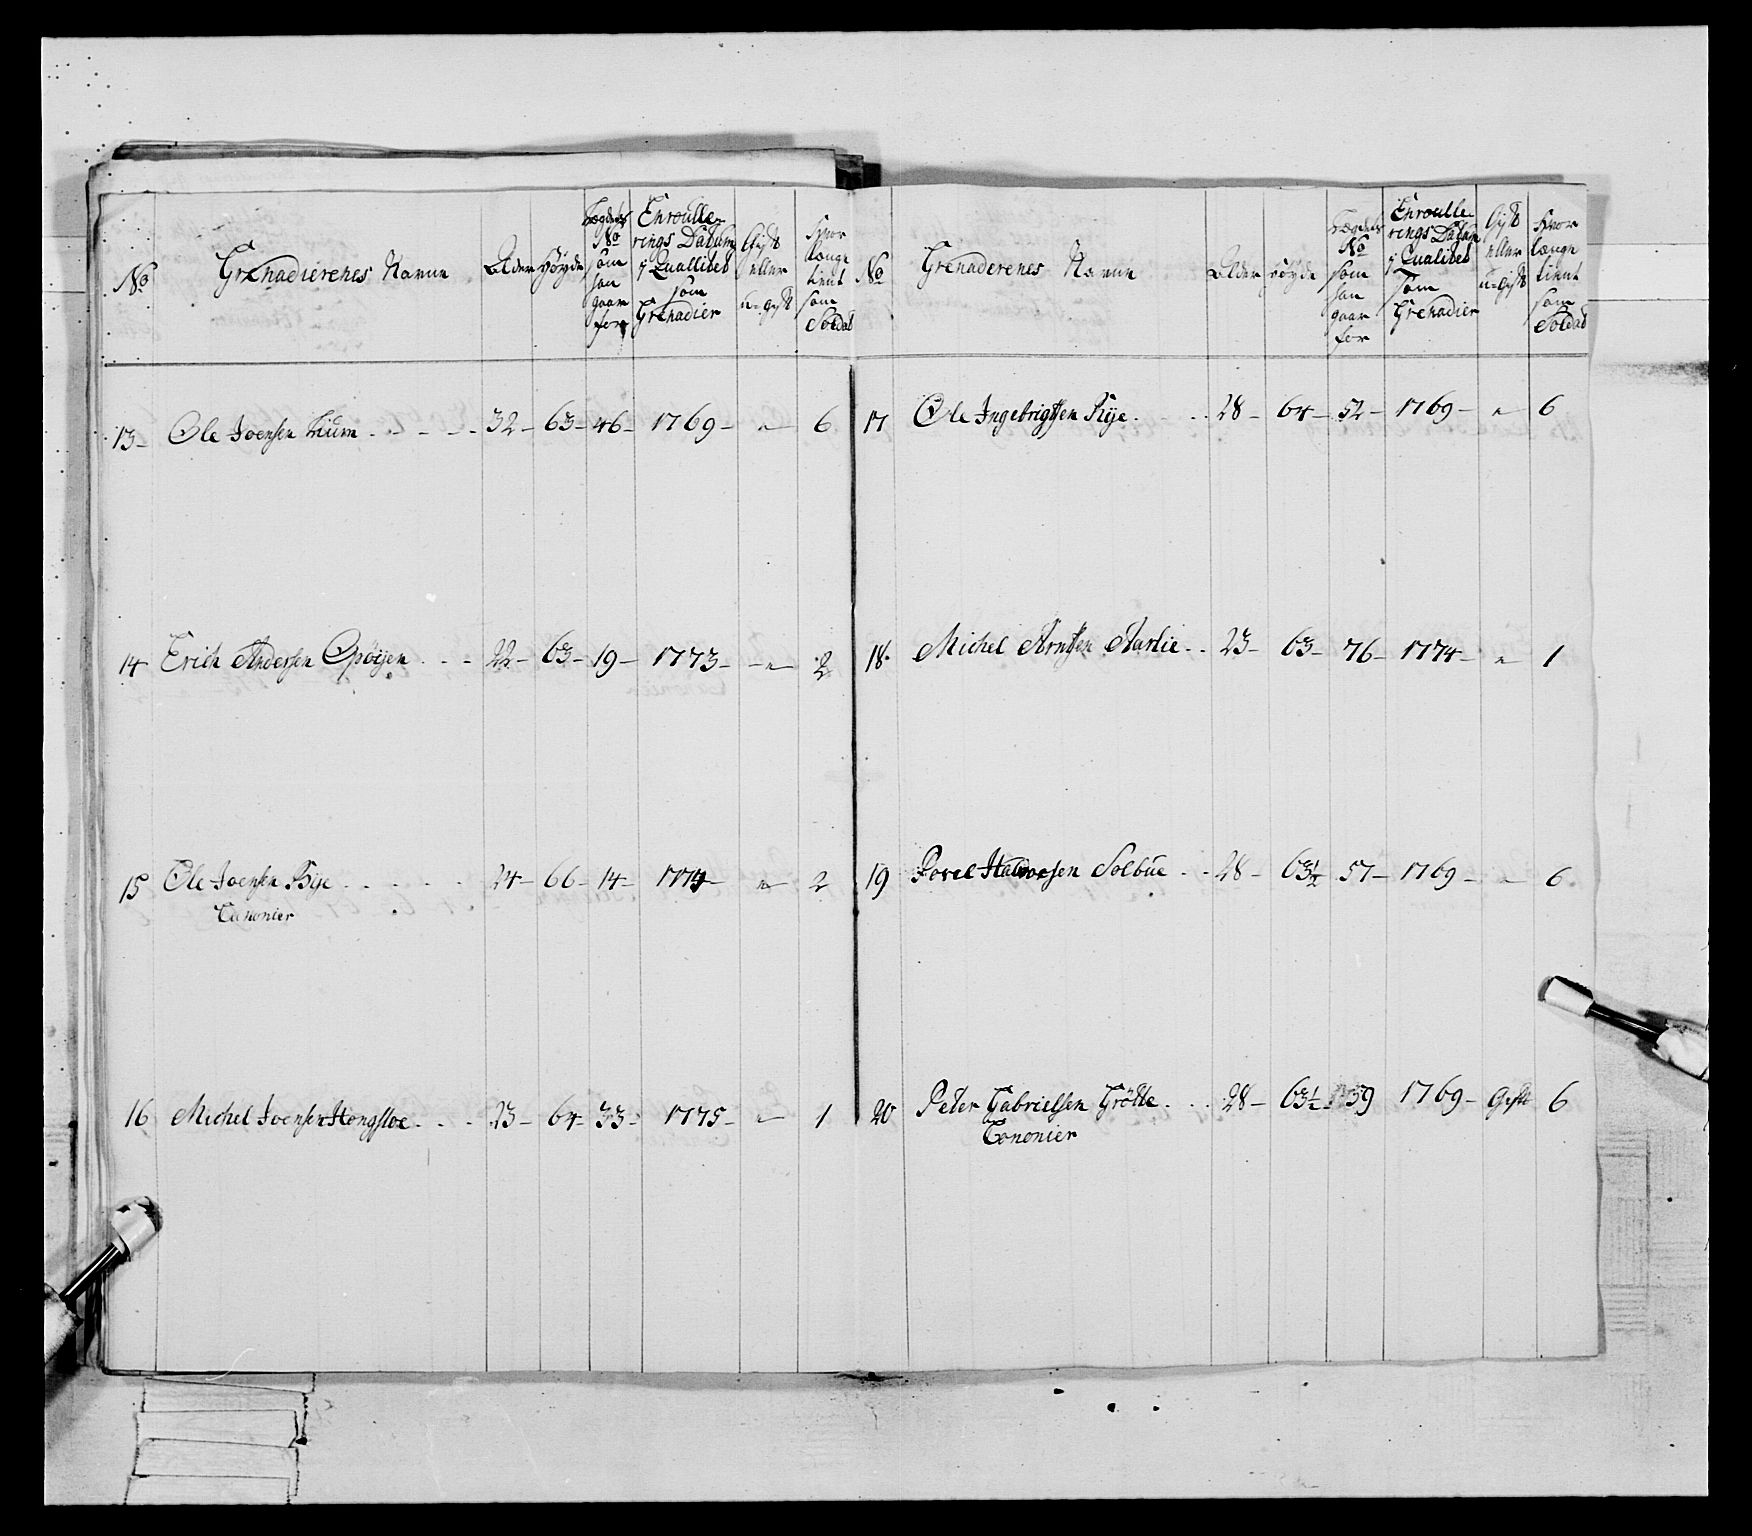 No
Grenadierenes Navne
Alder
Høyde
Lægdets
No
som
han
gaar
for
Enroulle-
rings Datum
j Quallitet
som
Grenadier
Gift
eller
u-gift
Hvor
længe
tient
som
Soldat
13 Ole Joensen Lium 32 63 46 1769 " 6
14 Erich Andersen Opøijen 22 63 19 1773 " 2
15 Ole Joensen Bije 24 66 14 1774 " 2
Canonier
16 Michel Joensen Hongsloe 23 64 33 1775 " 1
No
Grenaderenes Navne
Alder
Høyde
Lægdets
No
som
han
gaar
for
Enroulle-
rings Datum
j Qualitet
som
Grenadier
Gift
eller
u-gift
Hvor
længe
tient
som
Soldat
17 Ole Ingebrigtsen Rije 28 64 52 1769 " 6
18 Michel Arntsen Aarlie 23 63 76 1774 " 1
19 Povel Halvorsen Solbue 28 63½ 57 1769 " 6
20 Peter Gabrielsen Grötte 28 63½ 39 1769 Gift 6
Cononier